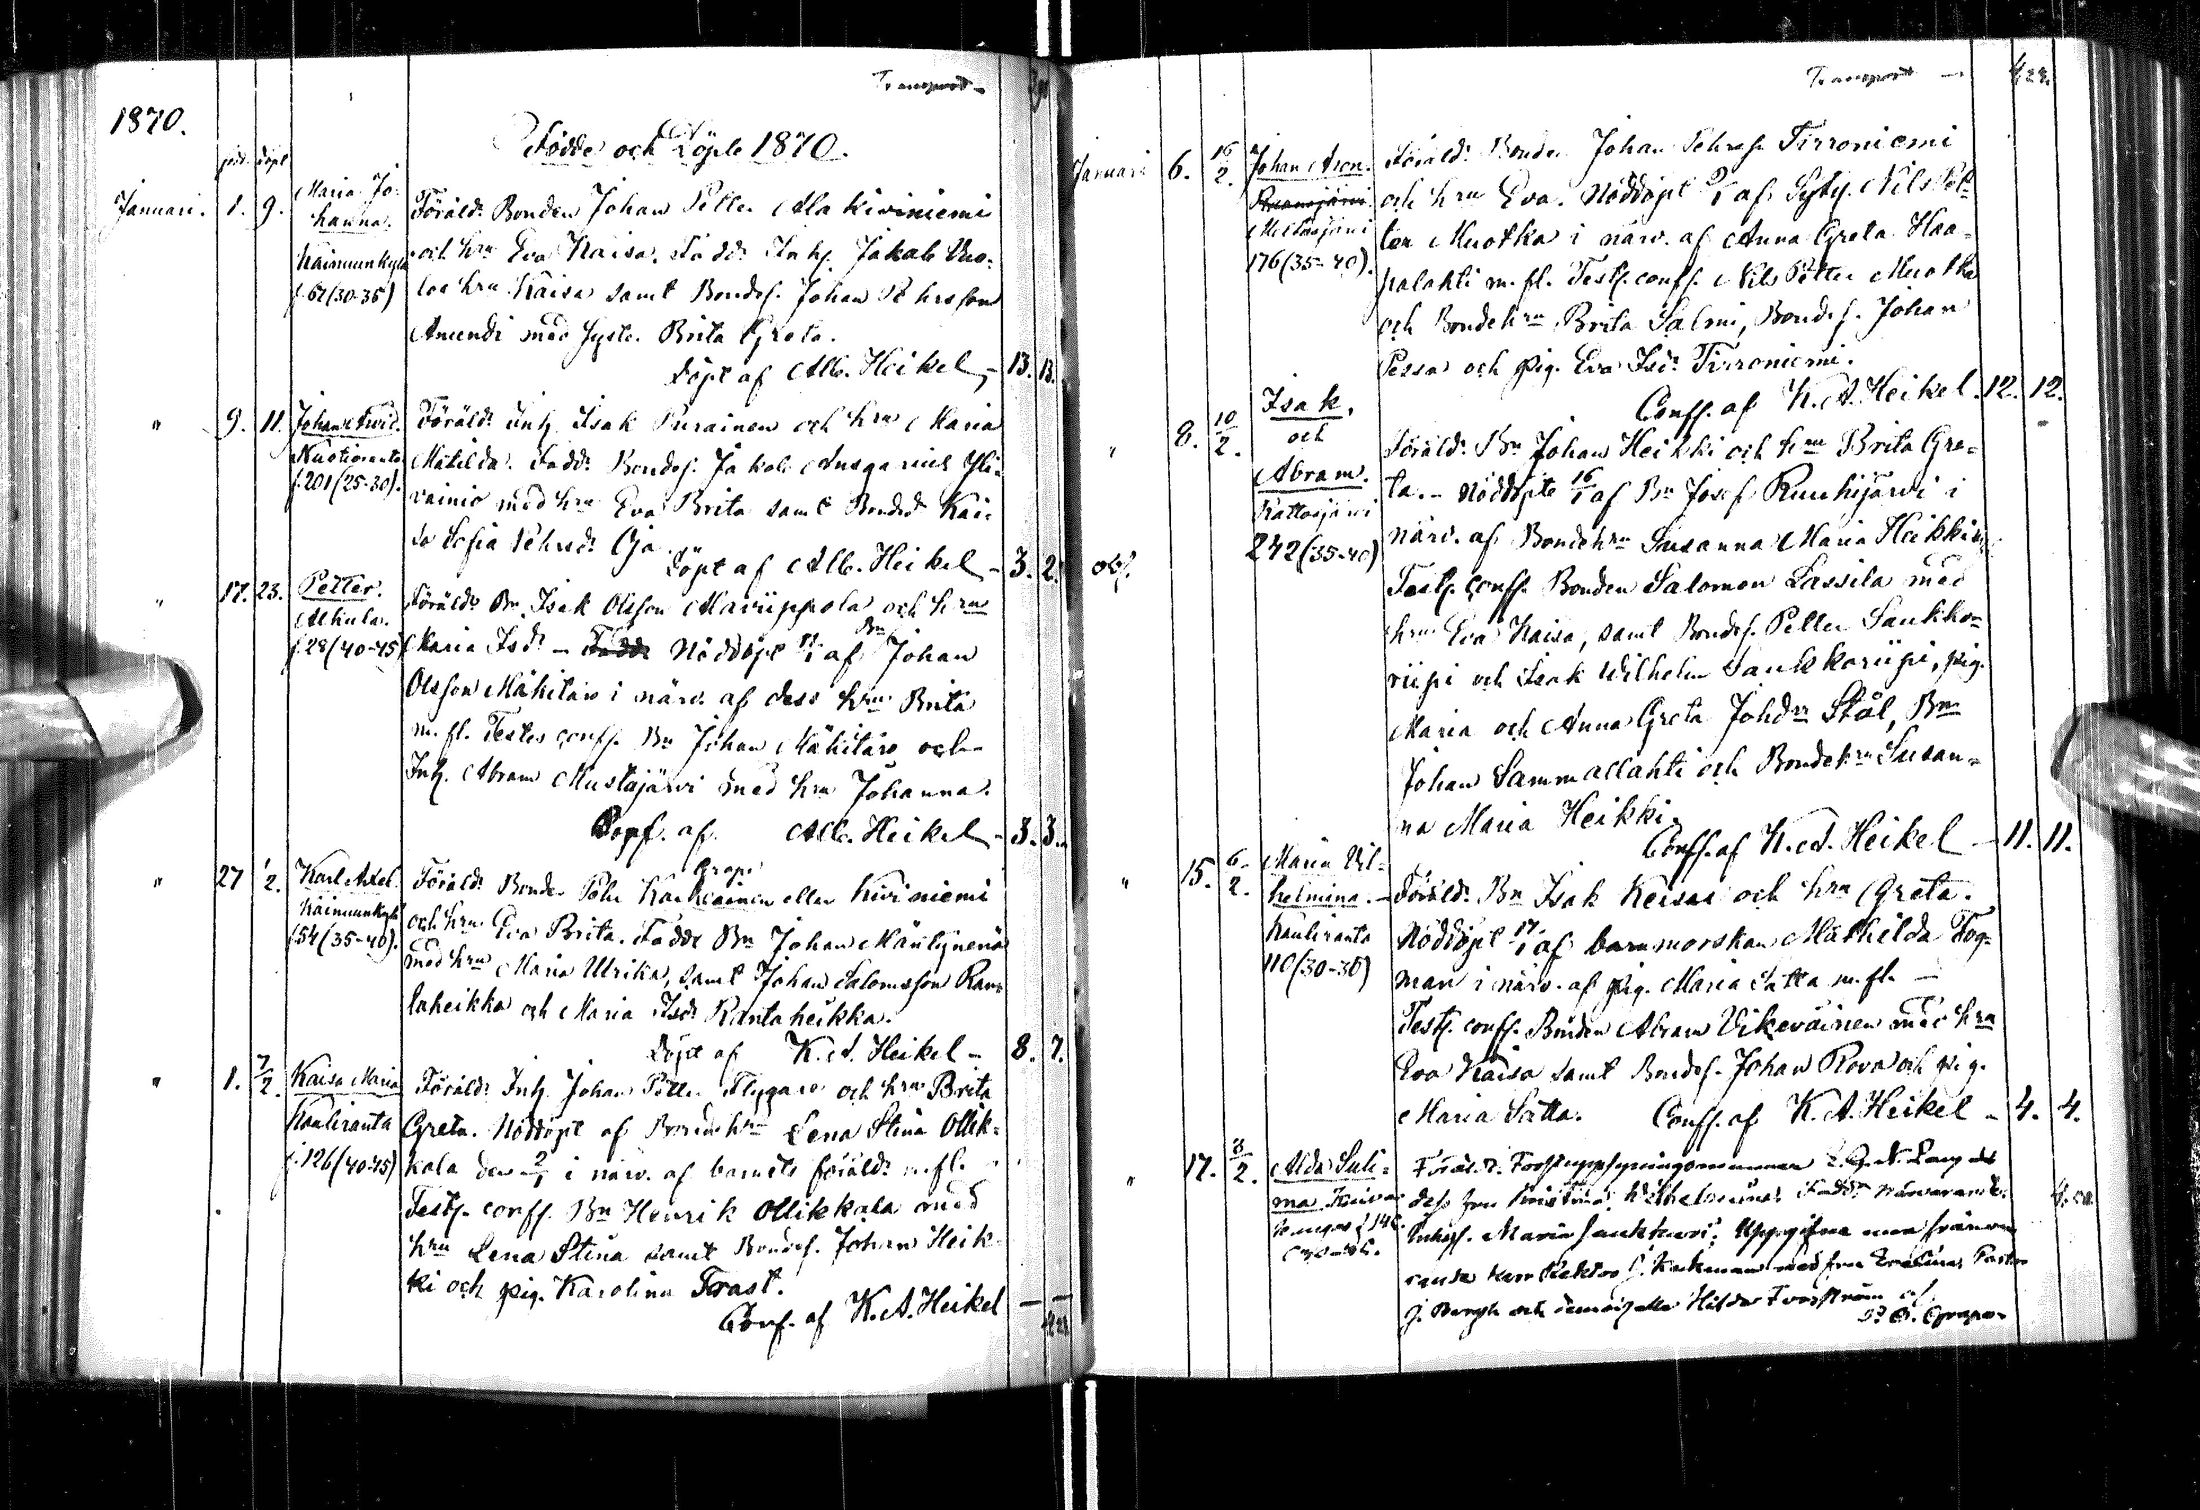 Transport
1870.
Födde och Döpte 1870.
född döpt
Januari. 1. 9. Maria Jo-
hanna.
Föräldr. Bonden Johan Petter Ala kiviniemi
och hru Eva Kaisa. Faddr. Inh. Jakob Vuo-
f. 62 (30-35)
loa hru Kaisa samt Bondes. Johan Pehrsson
med syste. Brita Greta.
Döpt af Alb. Heikel - 13. 13.
" 9. 11. Föräldr. Inh. Isak Purainen och hru Maria
f. 201 (25-30).
Matilda. Faddr. Bondes. Jakob Ansgarius Yli-
vainio med hru Eva Brita samt Bonded. Kai-
sa Sofia Pehrsdr. Oja
Döpt af Alb. Heikel - 3. 2.
" 17. 23. Petter.
Alkula.
f. 28 (40-45)
Föräldr. Bn Isak Olsson och hru
Maria Isdr. - Faddr Nöddöpt 17/1 af Bn Johan
Olsson Mäkitalo i närv. af dess hru Brita
m. fl. Testes conf. Bn Johan Mäkitalo och
Inh. Abram Mustajärvi med hru Johanna.
af. Alb. Heikel - 3. 3.
" 27 1/2. Karl Axel.
f. 54 (35-40).
Föräldr. Bonden Pehr eller Kiviniemi
och hru Eva Brita. Faddr. Bn Johan Mäntynenä
med hru Maria Ulrika, samt Johan Salomsson Ran-
taheikka och Maria Isdr. Rantaheikka.
Döpt af K. A. Heikel - 8. 7.
" 1. 7/2. Kaisa Maria
Kauliranta
f. 126 (40-45)
Föräldr. Inh. Johan Petter Flygare och hru Brita
Greta. Nöddöpt af Bondehru Lena Stina Ollik-
kala den 2/1 i närv. af barnets föräldr. m. fl.
Test. conf. Bn Henrik Ollikkala med
hru Lena Stina samt Bondes. Johan Heik-
ki och pig. Karolina Frast.
Conf. af K. A. Heikel
Transport - 4,22.
Januari 6. 16/2. Johan Aron.
Miekojärvi
176 (35-40).
Föräldr. Bonden Johan Pehrss. Tirroniemi
och hru Eva. Nöddöpt 9/1 af Syty. Nils Pet-
ter Muotka i närv. af Anna Greta Haa-
palahti m. fl. Test. conf. Nils Petter Muotka
och Bondehru Brita Salmi, Bondes. Johan
Pessa och pig. Eva Isdr. Tirroniemi.
Conf. af K. A. Heikel. 12. 12.
" 8. 10/2. Isak,
och
Abram.
Rattosjärvi
242 (35-40)
Föräldr. Bn Johan Heikki och hru Brita Gre-
ta. - Nöddöpte 16/1 af Bn Josef Ruuhijärvi i
närv. af Bondehru Susanna Maria Heikki
Test. conf. Bonden Salomon Lassila med
hru Eva Kaisa, samt Bondes. Petter Saukko-
riipi och Isak Wilhelm Saukkoriipi, pig.
Maria och Anna Greta Johdr. Stål, Bn
Johan Sammallahti och Bondehru Susan-
na Maria Heikki.
Conf. af K. A. Heikel - 11. 11.
" 15. 6/2. Maria Vil-
helmina.
Kauliranta
110 (30-35)
Föräldr. Bn Isak Keisai och hru Greta.
Nöddöpt 17/1 af barnmorskan Mathilda Fog-
man i närv. af pig. Maria Satta m. fl. -
Test. conf. Bonden Abram Vikeväinen med hru
Eva Kaisa samt Bondes. Johan Rova och pig.
Maria Satta. Conf. af K. A. Heikel - 4. 4.
" 17. 3/2. Alda Suli-
ma
Föräldr.
dess fru Kristina Wilhelmina. Faddr. närvarande:
Maria Uppgifna men frånva-
rande herr Rektor med fru Evelina, Pastor
J. Bergh och demoiselle Hilda Forsström af